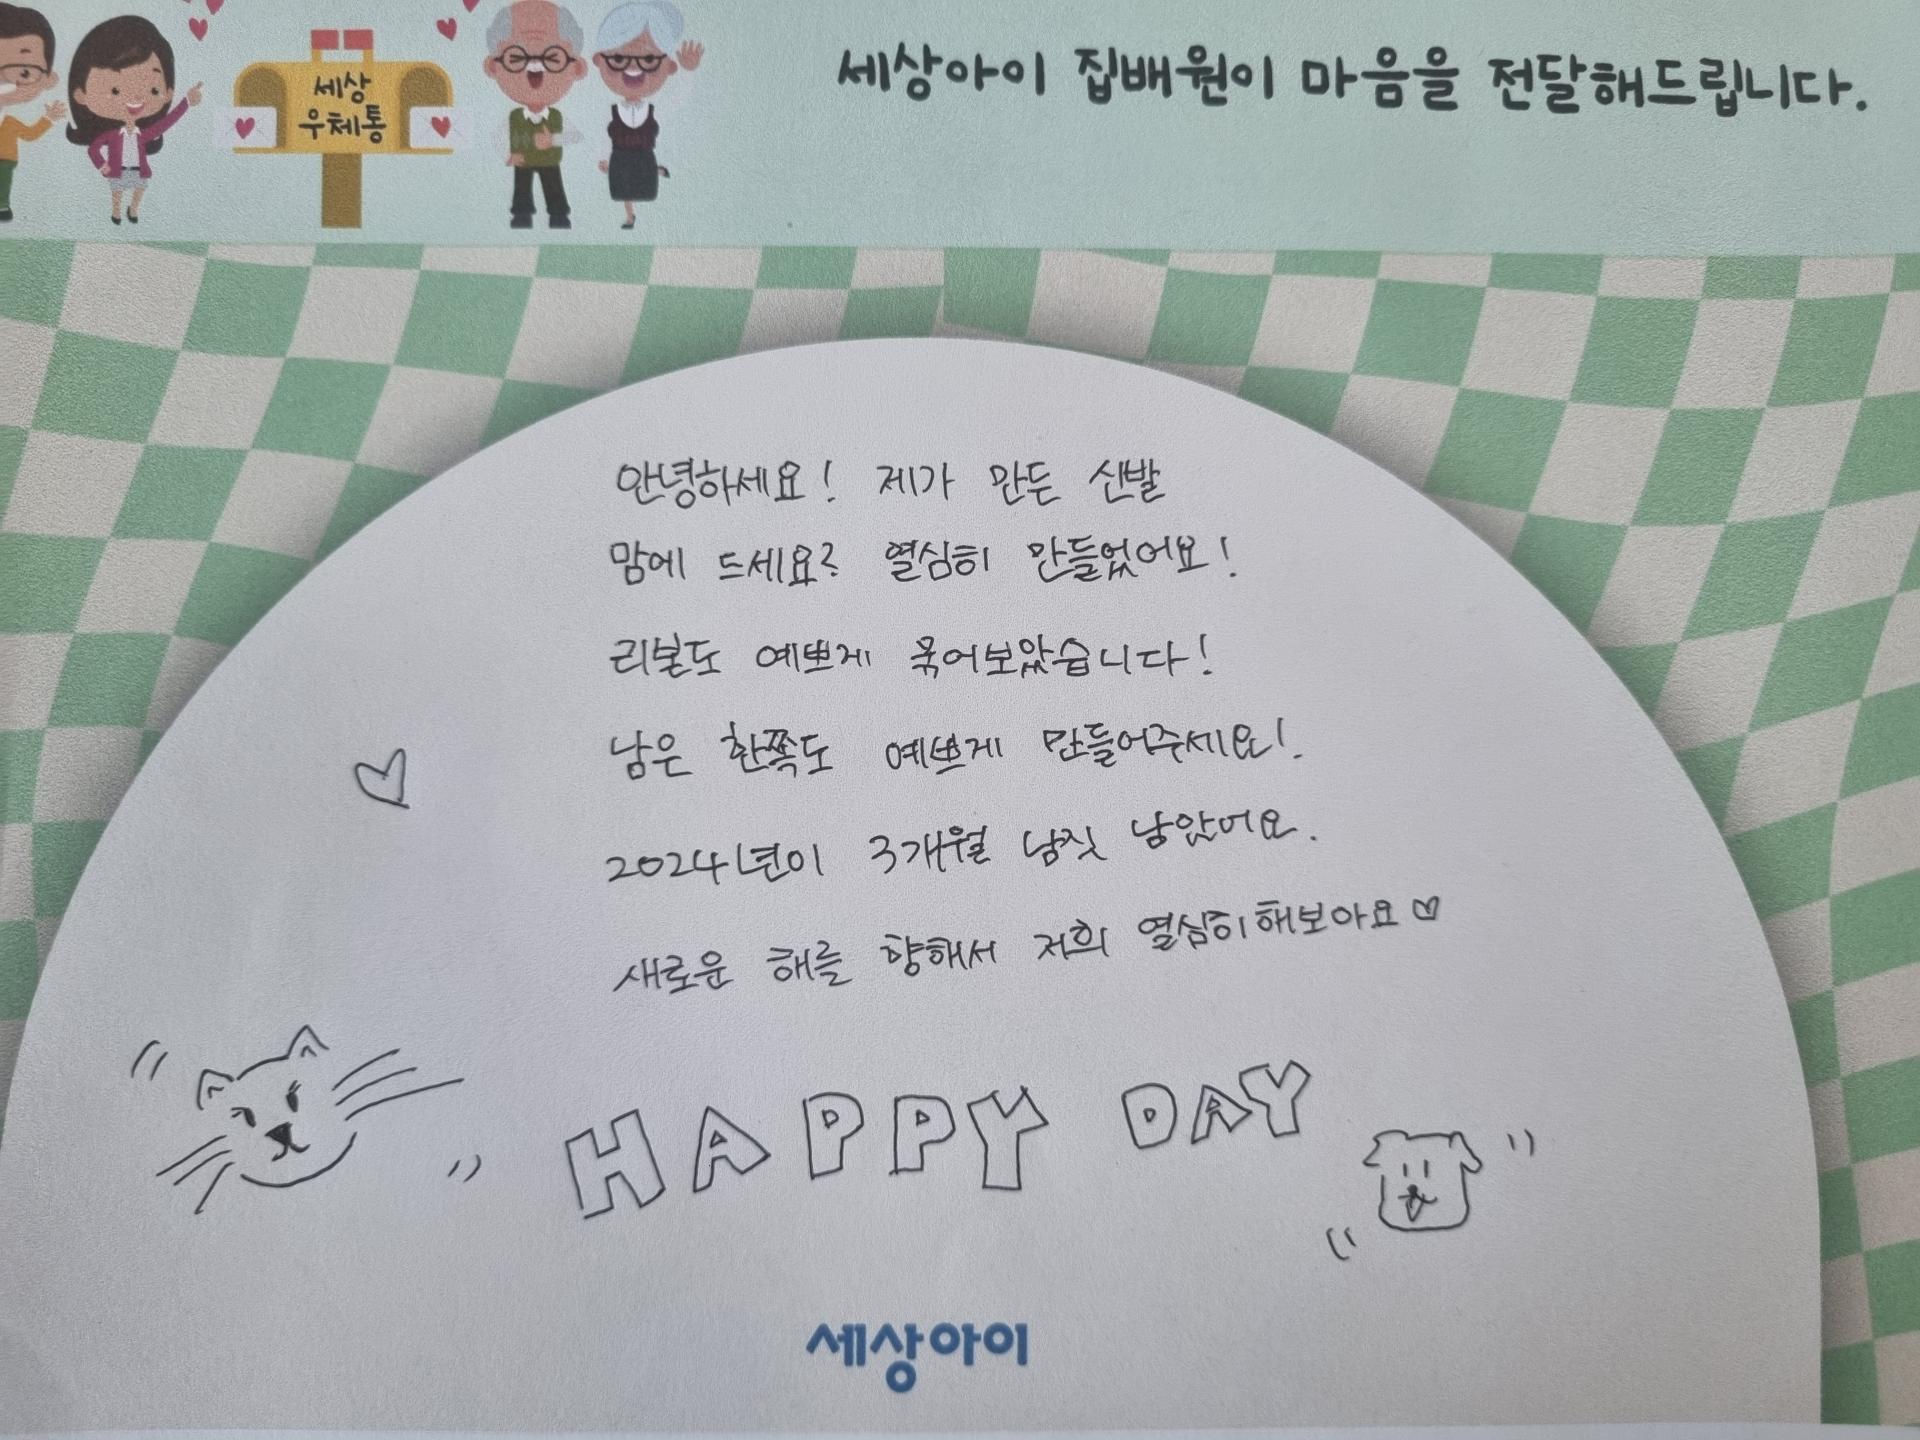 세상아이 집배원이 마음을 전달해드립니다.
세상
우체통
안녕하세요! 제가 만든 신발
맘에 드세요? 열심히 만들었어요!
리본도 예쁘게 묶어보았습니다!
남은 한쪽도 예쁘게 만들어주세요!.
2024년이 3개월 남짓 남았어요.
새로운 해를 향해서 저희 열심히해보아요♡
HAPPY DAY
세상아이